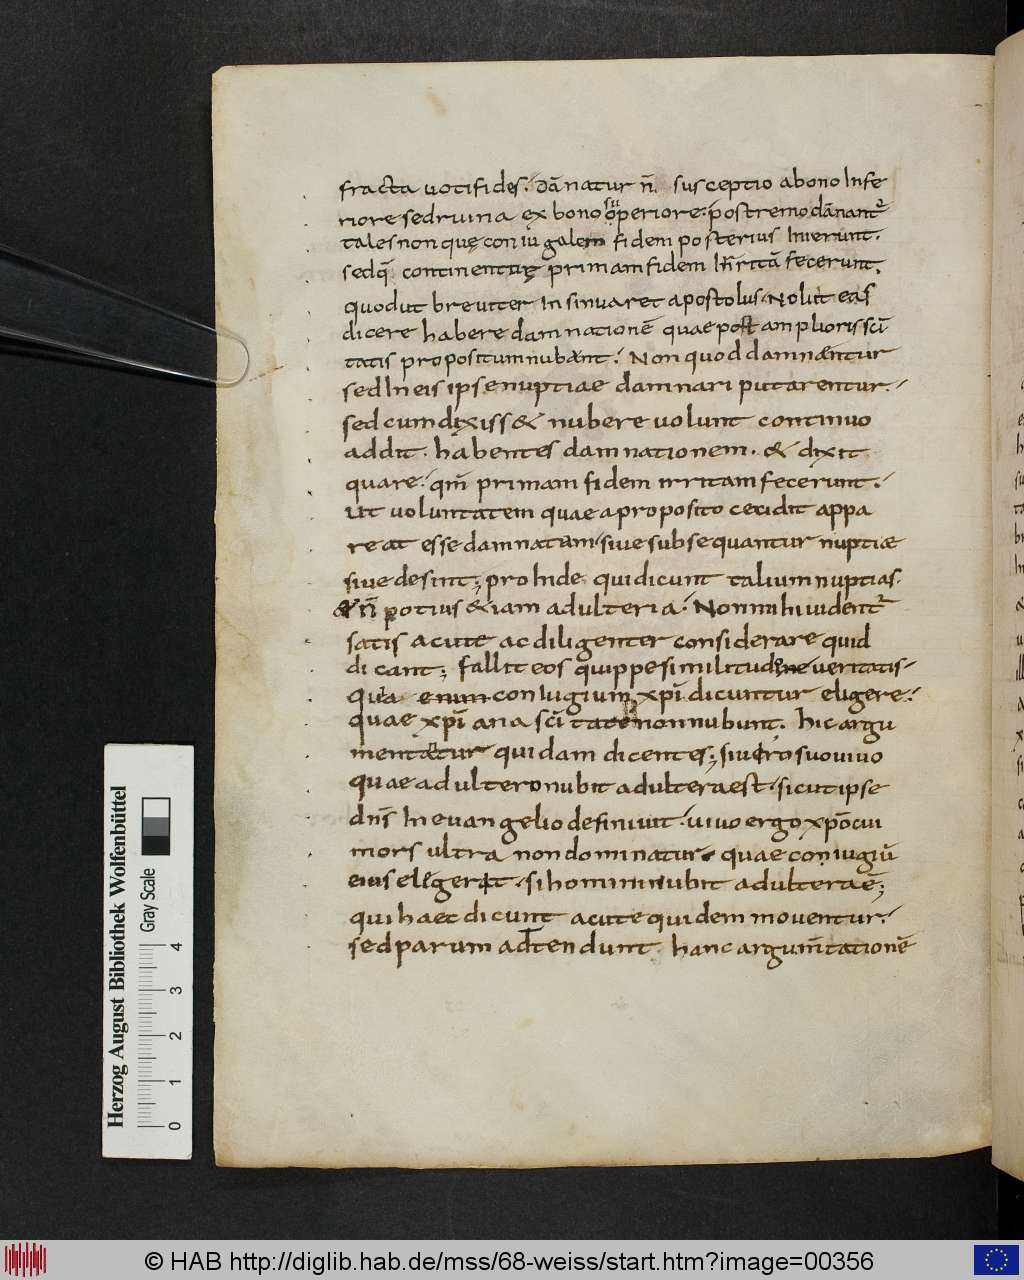 fracta uoti fides. dānatur n̄ susceptio a bono Infe
riore sed ruina ex bono superiore. postremo dānant᷑
tales non quę coniugalem fidem posterius Inierunt.
sedq̄ continentię primam fidem Irritā fecerunt.
quod ut breuiter Insinuaret apostolus. Noluit eas
dicere habere damnationē quae post amplioris sc̄i
tatis propositum nubunt. Non quod damnentur
sed In eis ipse nuptiae damnari putarentur.
sed cum dixiss& nubere uolunt continuo
addit. habentes damnationem. & dixit
quare. qm̄ primam fidem irritam fecerunt.
ut uoluntatem quae a proposito cecidit appa
reat esse damnatam siue subsequantur nuptiæ
siue desint; proInde qui dicunt talium nuptias
n̄ potius & iam adulteria. Non mihi uident᷑
satis acute ac diligenter considerare quid
dicant; fallit eos quippe similitudine ueritatis
quia enim coniugium xp̄i dicuntur eligere.
quae xp̄iana sc̄itate non nubunt. hic argu
mentatur quidam dicentes; si uero suo uiuo
quae adultero nubit adultera est. sicut ipse
dn̄s In euangelio definiuit. uiuo ergo xp̄o cui
mors ultra non dominatur. quae coniugiū
eius elegerat. si homini nubit adultera ē;
qui haec dicunt acute quidem mouentur.
sed parum adtendunt hanc argum̄tationē
Herzog August Bibliothek Wolfenbüttel
Gray Scale
0 1 2 3 4
© HAB http://diglib.hab.de/mss/68-weiss/start.htm?image=00356